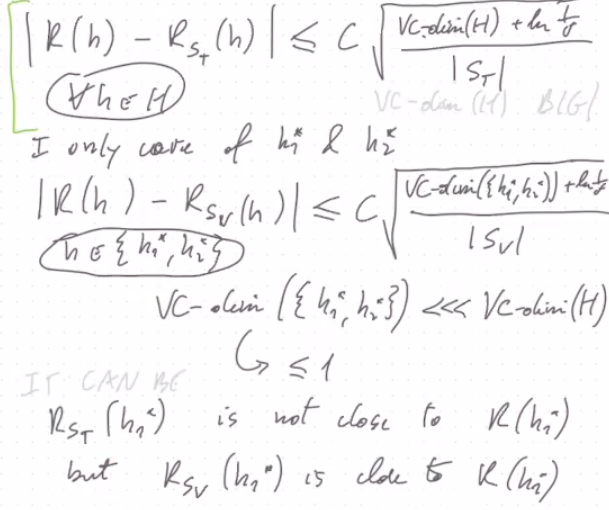 |R(h) - R_{S_T}(h)| ≤ C √((VC-dim(H) + ln 1/δ) / |S_T|)
∀h∈H
VC-dim(H) BIG!
I only care of h₁* & h₂*
|R(h) - R_{S_V}(h)| ≤ C √((VC-dim({h₁*, h₂*}) + ln 1/δ) / |S_V|)
h ∈ {h₁*, h₂*}
VC-dim({h₁*, h₂*}) <<< VC-dim(H)
↳ ≤ 1
IT CAN BE
R_{S_T}(h₁*) is not close to R(h₁*)
but R_{S_V}(h₁*) is close to R(h₁*)